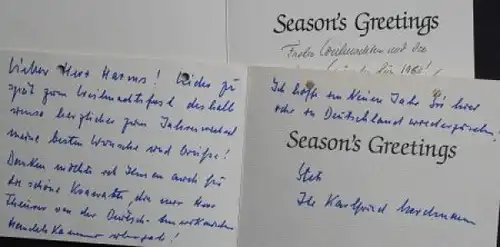 Season's Greetings
Frohe Weihnachten und die
Lieber Herr Harms! Leider zu
spät zum Weihnachtsfest deshalb
umso herzlicher zum Jahreswechsel
meine besten Wünsche und Grüße!
Danken möchte ich Ihnen auch für
die schöne Krawatte, die mir Herr
von der Deutsch-Amerikanischen
Handelskammer übergab!
Ich hoffe im Neuen Jahr Sie hier
oder in Deutschland wiederzusehen!
Season's Greetings
Stets
Ihr Karlfried